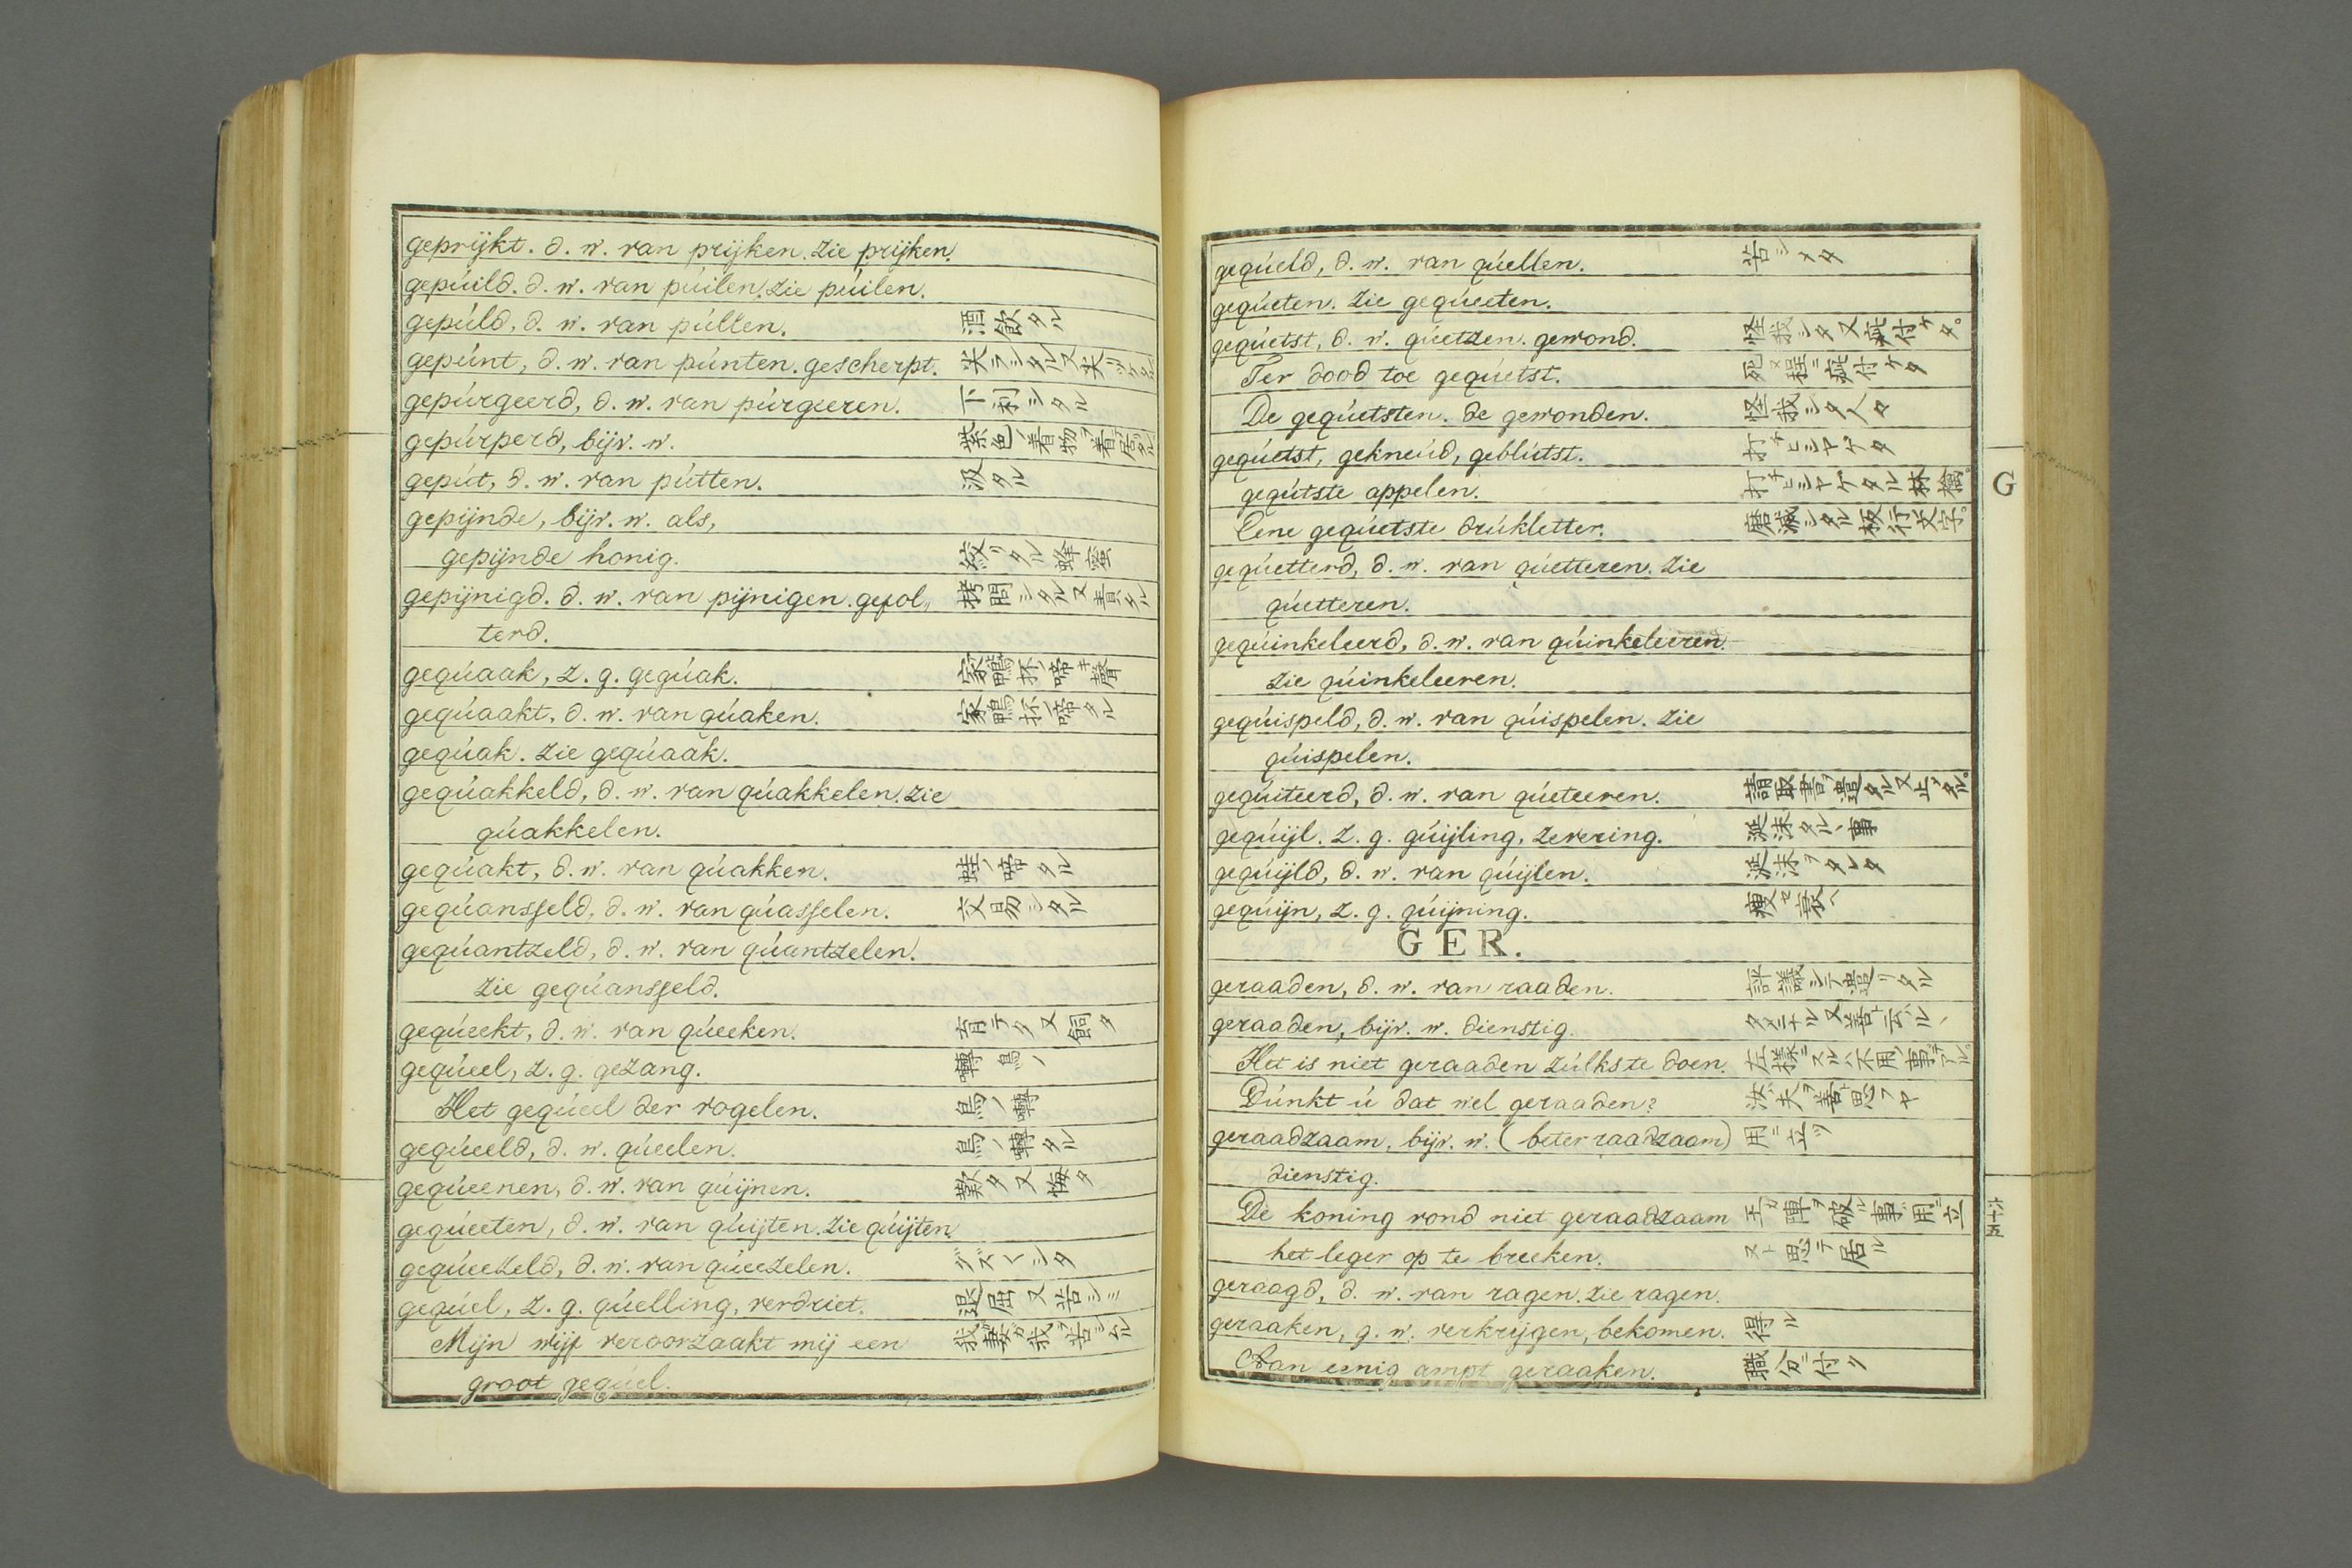 geprijkt. d. w. van prijken. zie prijken.
gepúild. d. w. van púilen. zie púilen.
gepúld, d. w. van púllen. 酒飲タル
gepúnt, d. w. van púnten. gescherpt.
gepúrgeerd, d. w. van púrgeeren. 下利シタル
gepúrperd, bijv. w. 紫色ノ着物ヲ着テ居タル
gepút, d. w. van pútten. 汲タル
gepijnde, bijv. w. als,
gepijnde honig. 絞リタル蜂蜜
gepijnigd. d. w. van pijnigen. gefol„ 拷問シタル又責タル
terd.
geqúaak, z. g. geqúak. 家鴨抔ノ啼キ聲
geqúaakt, d. w. van qúaken. 家鴨抔ノ啼タル
geqúak. zie geqúaak.
geqúakkeld, d. w. van qúakkelen. zie
qúakkelen.
geqúakt, d. w. van qúakken. 蛙ノ啼タル
geqúansseld, d. w. van qúasselen. 交易シタル
geqúantzeld, d. w. van qúantzelen.
zie geqúansseld.
geqúeekt, d. w. van qúeeken. 育テタ又飼タ
geqúeel, z. g. gezang. 囀鳥ノ
Het geqúeel der vogelen. 鳥ノ囀
geqúeeld, d. w. qúeelen. 鳥ノ囀タル
geqúeenen, d. w. van qúijnen. 歎タ又悔タ
geqúeeten, d. w. van qúijten. zie qúijten.
geqúeezeld, d. w. van qúeezelen.
geqúel, z. g. qúelling, verdriet. 退屈又苦シミ
Mijn wijf veroorzaakt mij een 我妻ガ我ヲ苦シムル
groot geqúel.
geqúeld, d. w. van qúellen. 苦シメタ
geqúeten. zie geqúeeten.
geqúetst, d. w. qúetzen. gewond. 怪我シタ又疵付ケタ。
Ter dood toe geqúetst. 死ヌ程ニ疵付ケタ
De geqúetsten. de gewonden. 怪我シタ人々
geqúetst, gekneúd, geblútst. 打チヒシヤゲタ
geqútste appelen. 打チヒシヤゲタル林檎。
Eene geqúetste drúkletter. 磨滅シタル板行文字。
geqúetterd, d. w. van qúetteren. zie
qúetteren.
geqúinkeleerd, d. w. van qúinkeleeren.
zie qúinkeleeren.
geqúispeld, d. w. van qúispelen. zie
qúispelen.
geqúiteerd, d. w. van qúeteeren. 請取書ヲ遣タル又止ダル。
geqúijl. z. g. qúijling, zevering. 涎沫タルヽ事
geqúijld, d. w. van qúijlen. 涎沫ヲタレタ
geqúijn, z. g. qúijning. 痩セ衰ヘ
GER.
geraaden, d. w. van raaden. 評議シテ遣リタル
geraaden, bijv. w. dienstig.
Het is niet geraaden zúlks te doen. 左様ニスルハ不用ノ事デアル。
Dúnkt ú dat wel geraaden? 汝夫ヲ善ト思フヤ
geraadzaam, bijv. w. (beter raadzaam) 用ニ立ツ
dienstig.
De koning vond niet geraadzaam 王ガ陣ヲ破ル事ガ用ニ立
het leger op te breeken. ヌト思テ居ル
geraagd, d. w. van ragen. zie ragen.
geraaken, g. w. verkrijgen, bekomen. 得ル
Aan eenig ampt geraaken. 職分ニ付ク
G